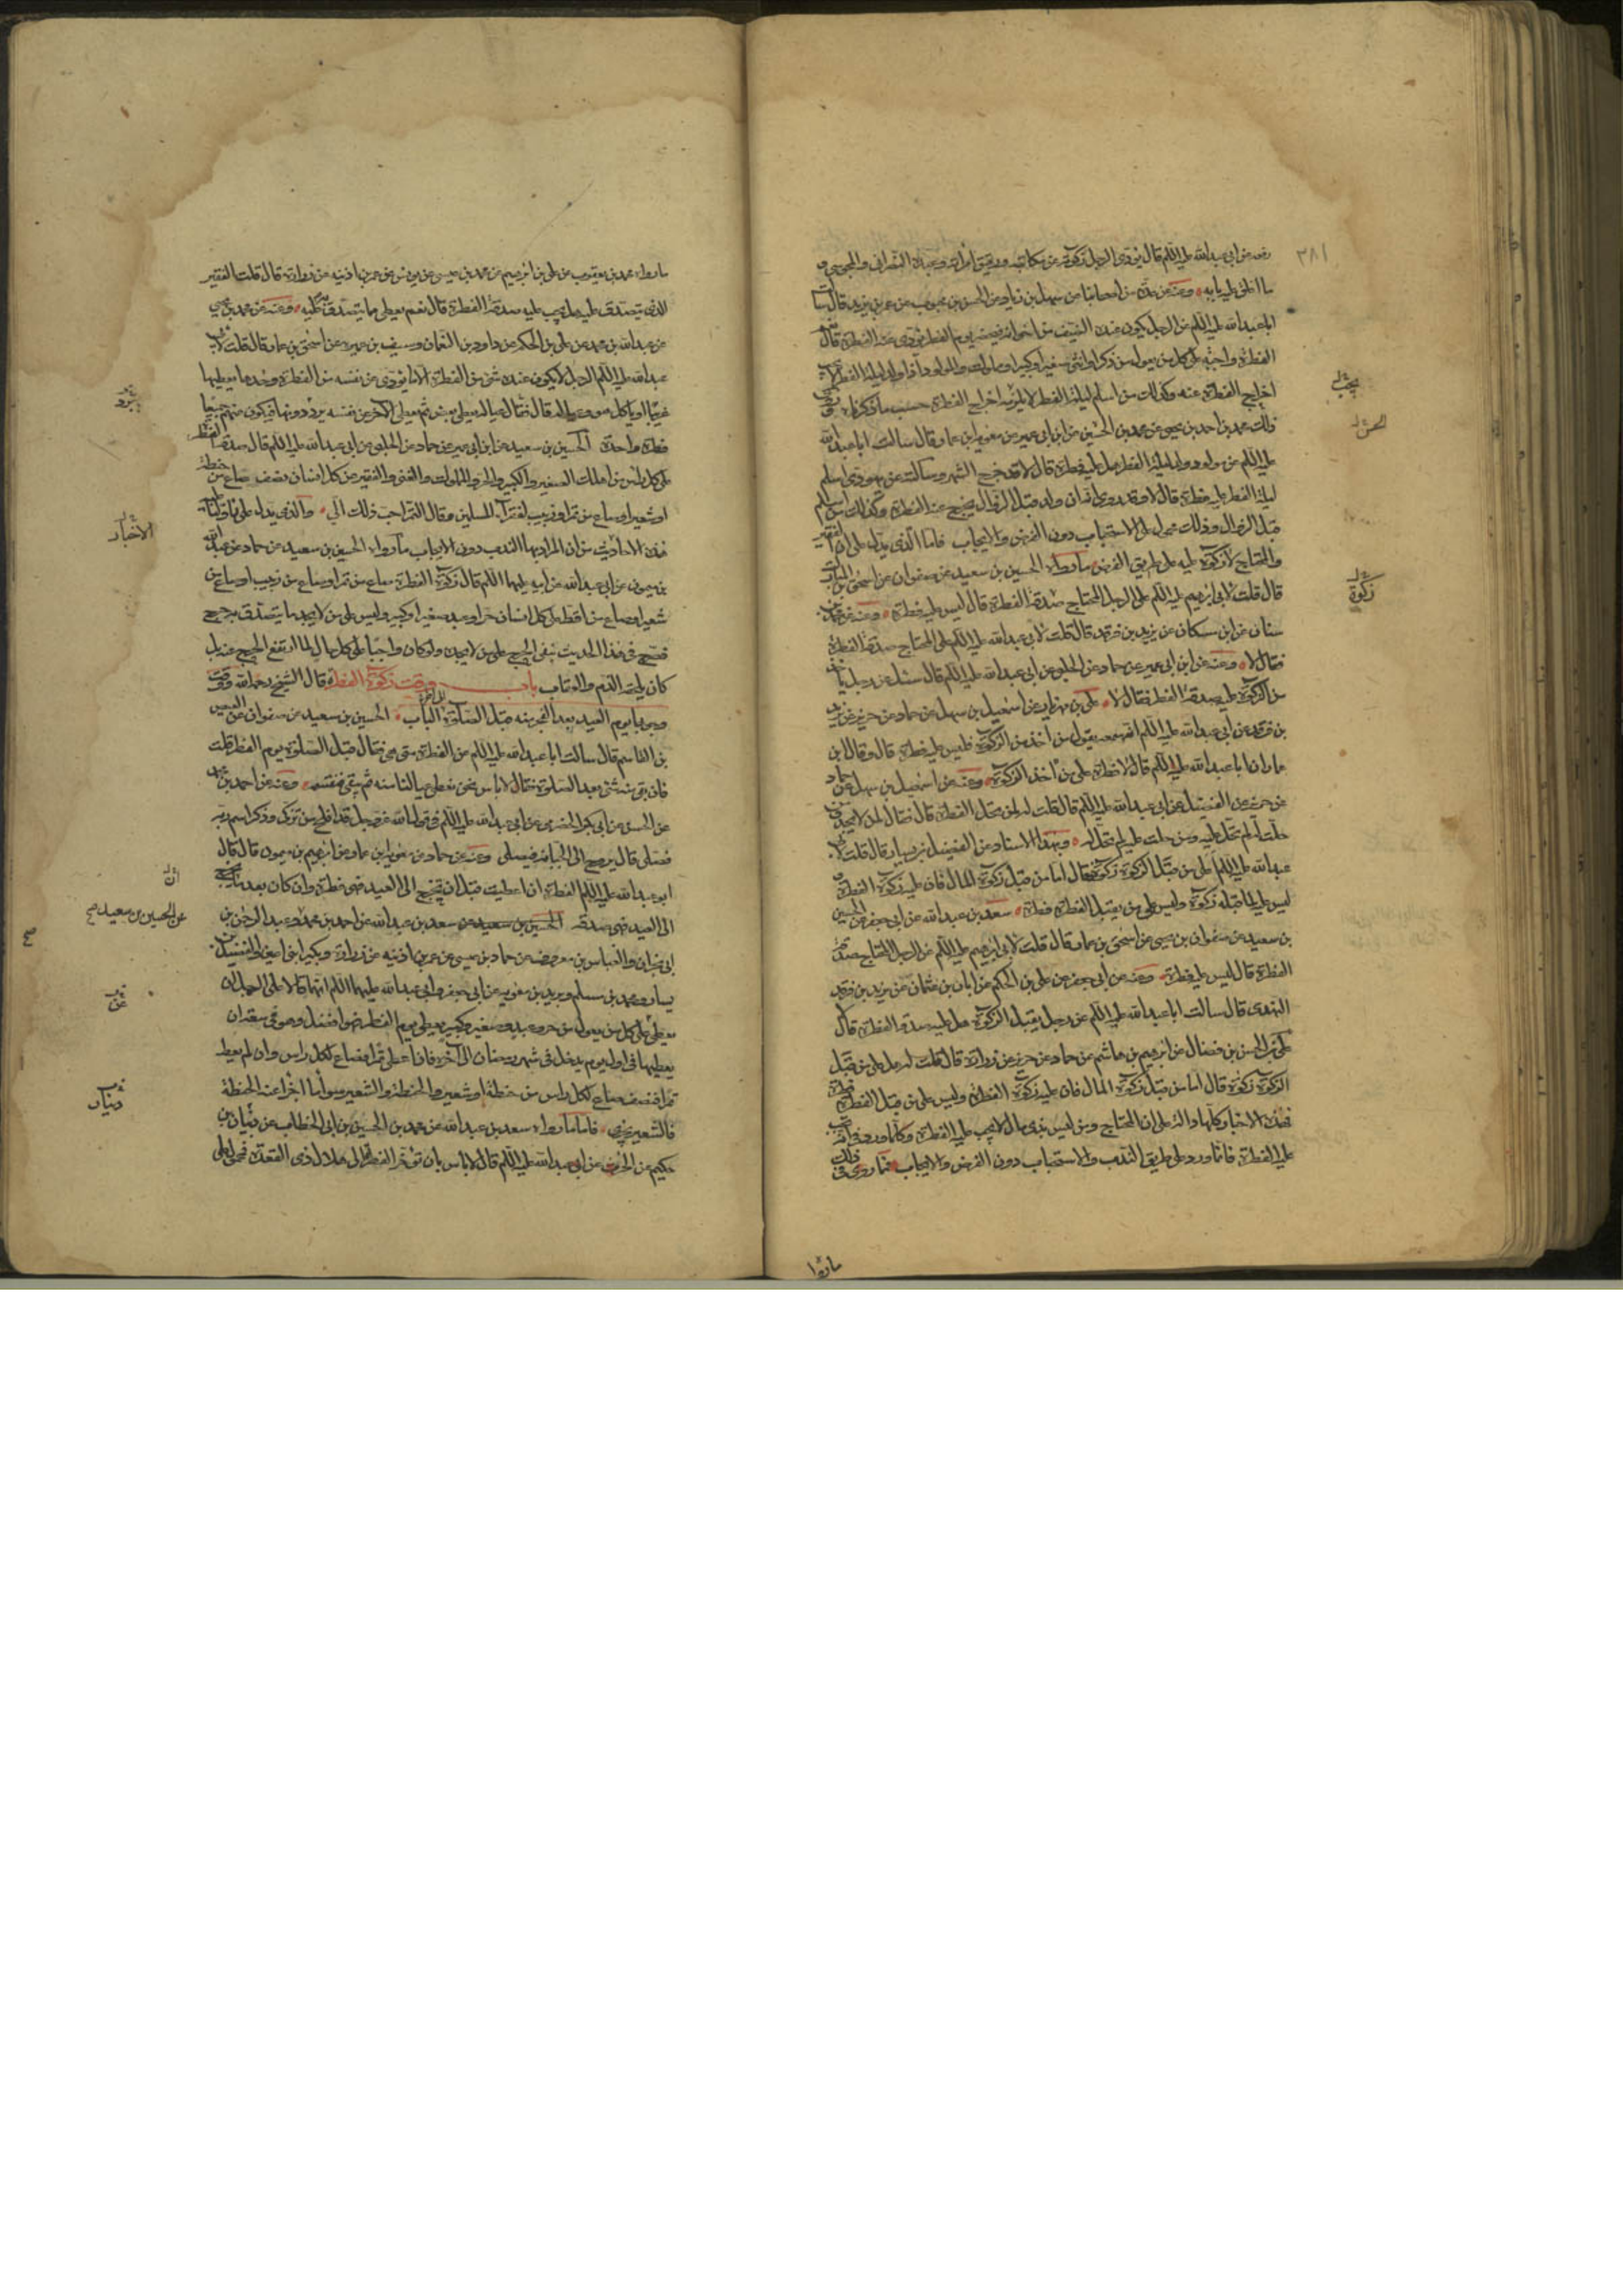 ٣٨١
رفعه عن ابي عبدالله عليه السلم قال يؤدى الرجل زكوته عن مكاتبه ورقيق امراته وعبده النصرانى والمجوسى و
ما اغلق عليه بابه وعنه عن عدة من اصحابنا عن سهل بن زياد عن الحسن بن محبوب عن عمر بن يزيد قال سالت
ابا عبدالله عليه السلم عن الرجل يكون عنده الضيف من اخوانه فيحضر يوم الفطر يؤدى عنه الفطرة قال نعم
الفطرة واجبة على كل من يعول من ذكر او انثى صغير او كبير او مملوك والمولود اذا ولد ليلة الفطر لا يجب
اخراج الفطرة عنه وكذلك من اسلم ليلة الفطر لا يلزمه اخراج الفطرة حسب ما ذكرناه روى
ذلك محمد بن احمد بن يحيى عن محمد بن الحسين عن ابن ابى عمير عن معوية بن عمار قال سالت ابا عبدالله
عليه السلم عن مولود ولد ليلة الفطر عليه فطرة قال لا قد خرج الشهر وسالته عن يهودى اسلم
ليلة الفطر عليه فطرة قال لا وقد روى انه ان ولد قبل الزوال يخرج عنه الفطرة وكذلك من اسلم
قبل الزوال وذلك محمول على الاستحباب دون الفرض والايجاب فاما الذى يدل على ان الفقير
والمحتاج لا زكوة عليه على طريق الفرض ما رواه الحسين بن سعيد عن صفوان عن اسحق بن المبارك
قال قلت لابى ابرهيم عليه السلم على الرجل المحتاج صدقة الفطرة قال ليس عليه فطرة وعنه عن محمد بن
سنان عن ابن مسكان عن يزيد بن فرقد قال قلت لابى عبدالله عليه السلم على المحتاج صدقة الفطرة
فقال لا وعنه عن ابن ابى عمير عن حماد عن الحلبى عن ابى عبدالله عليه السلم قال سئل عن رجل ياخذ
من الزكوة عليه صدقة الفطر فقال لا على بن مهزيار عن اسمعيل بن سهل عن حماد عن حريز عن يزيد
بن فرقد عن ابى عبدالله عليه السلم انه سمعه يقول من اخذ من الزكوة فليس عليه فطرة قال وقال ابن
عمار ان ابا عبدالله عليه السلم قال لا فطرة على من اخذ الزكوة وعنه عن اسمعيل بن سهل عن حماد
عن حريز عن الفضيل عن ابى عبدالله عليه السلم قال قلت له لمن تحل الفطرة قال فقال لمن لا يجد ومن
حلت له لم تحل عليه ومن حلت عليه لم تحل له وبهذا الاسناد عن الفضيل بن يسار قال قلت لابى
عبدالله عليه السلم اعلى من قبل الزكوة زكوة فقال اما من قبل زكوة المال فان عليه زكوة الفطرة و
ليس عليه لما قبله زكوة وليس على من يقبل الفطرة فطرة سعد بن عبدالله عن ابى جعفر عن الحسين
بن سعيد عن صفوان بن يحيى عن اسحق بن عمار قال قلت لابى ابرهيم عليه السلم على الرجل المحتاج صدقة
الفطرة قال ليس عليه فطرة وعنه عن ابى جعفر عن على بن الحكم عن ابان بن عثمان عن يزيد بن فرقد
النهدى قال سالت ابا عبدالله عليه السلم عن رجل يقبل الزكوة هل عليه صدقة الفطرة قال لا
على بن الحسن بن فضال عن ابرهيم بن هاشم عن حماد عن حريز عن زرارة قال قلت له هل على من قبل
الزكوة زكوة قال اما من قبل زكوة المال فان عليه زكوة الفطرة وليس على من قبل الفطرة فطرة
فهذه الاخبار كلها دالة على ان المحتاج ومن ليس بذى مال لا يجب عليه الفطرة وكلما ورد فى انه يجب
عليه الفطرة فانما ورد على طريق الندب والاستحباب دون الفرض والايجاب فما روى فى ذلك
ما رواه
يجب
الحسن
زكوة
ما رواه محمد بن يعقوب عن على بن ابرهيم عن محمد بن عيسى عن يونس عن عمر بن اذينه عن زرارة قال قلت الفقير
الذى يتصدق عليه هل يجب عليه صدقة الفطرة قال نعم يعطى مما يتصدق به عليه وعنه عن محمد بن يحيى
عن عبدالله بن محمد عن على بن الحكم عن داود بن النعمان وسيف بن عميرة عن اسحق بن عمار قال قلت لابى
عبدالله عليه السلم الرجل لا يكون عنده شئ من الفطرة الا ما يؤدى عن نفسه من الفطرة وحدها يعطيها
غريبا او ياكل هو وعياله قال فقال يعطى بعض عياله ثم يعطى الآخر عن نفسه يرددونها فيكون عنهم جميعا
فطرة واحدة الحسين بن سعيد عن ابن ابى عمير عن حماد عن الحلبى عن ابى عبدالله عليه السلم قال صدقة الفطر
على كل راس من اهلك الصغير والكبير والحر والمملوك والغنى والفقير عن كل انسان نصف صاع من حنطة
او شعير او صاع من تمر او زبيب لفقراء المسلمين وقال التمر احب ذلك الى والذى يدل على ما قلناه
هذه الاحاديث من ان المراد بها الندب دون الايجاب ما رواه الحسين بن سعيد عن حماد عن عبدالله
بن ميمون عن ابى عبدالله عن ابيه عليهما السلم قال زكوة الفطرة صاع من تمر او صاع من زبيب او صاع من
شعير او صاع من اقط على كل انسان حر او عبد صغير او كبير وليس على من لا يجد ما يتصدق به حرج
فصرح فى هذا الحديث بنفى الحرج على من لا يجده ولو كان واجبا على كل حال لما ارتفع الحرج عنه بل
كان يلحقه الذم والعقاب باب وقت زكوة الفطرة قال الشيخ رحمه الله ووقت
وجوبها يوم العيد بعد الفجر منه قبل الصلوة الى آخر الباب الحسين بن سعيد عن صفوان عن العيص
بن القاسم قال سالت ابا عبدالله عليه السلم عن الفطرة متى هى فقال قبل الصلوة يوم الفطر قلت
فان بقى منه شئ بعد الصلوة فقال لا باس نحن نعطى عيالنا منه ثم يبقى فنقسمه وعنه عن احمد بن محمد
عن الحسن عن ابى بكر الحضرمى عن ابى عبدالله عليه السلم فى قول الله عز وجل قد افلح من تزكى وذكر اسم ربه
فصلى قال يروح الى الجبانة فيصلى وعنه عن حماد عن معوية بن عمار عن ابرهيم بن ميمون قال قال
ابو عبدالله عليه السلم الفطرة ان اعطيت قبل ان تخرج الى العيد فهى فطرة وان كان بعد ما تخرج
الى العيد فهى صدقة الحسين بن سعيد عن سعد بن عبدالله عن احمد بن محمد وعبد الرحمن بن
ابى نجران والعباس بن معروف عن حماد بن عيسى عن عمر بن اذينه عن زرارة وبكير ابنى اعين والفضيل بن
يسار ومحمد بن مسلم وبريد بن معوية عن ابى جعفر وابى عبدالله عليهما السلم انهما قالا على الرجل ان
يعطى على كل من يعول من حر وعبد وصغير وكبير يعطى يوم الفطر فهو افضل وهو فى سعة ان
يعطيها فى اول يوم يدخل فى شهر رمضان الى آخره فان اعطى تمرا فصاع لكل راس وان لم يعط
تمرا فنصف صاع لكل راس من حنطة او شعير والحنطة والشعير سوا ما اجزا عنه الحنطة
فالشعير يجزى فاما ما رواه سعد بن عبدالله عن محمد بن الحسين بن ابى الخطاب عن ذبيان بن
حكيم عن الحرث عن ابى عبدالله عليه السلم قال لا باس بان تؤخر الفطرة الى هلال ذى القعدة فمحمول على
الاخبار
ان
عن الحسين بن سعيد صح
عن
ذبيان